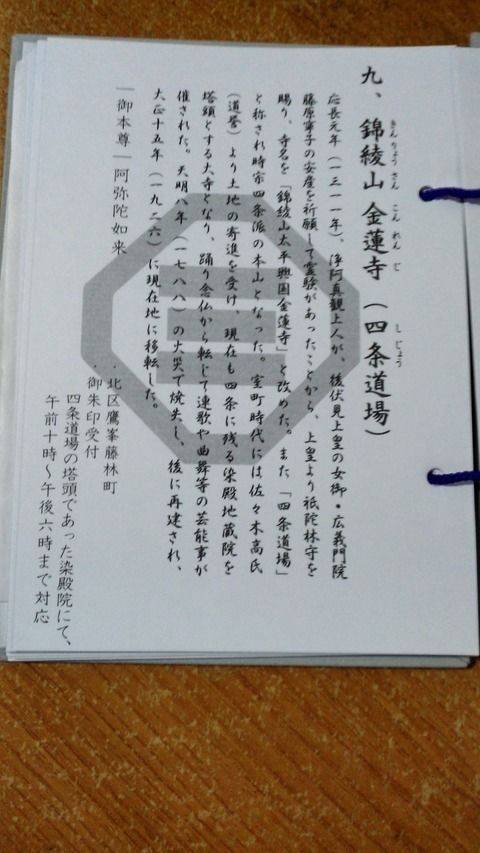 九、錦綾山 金蓮寺（四条道場）
きんりょうさん こんれんじ しじょう
応長元年（一三一一年）、浄阿真観上人が、後伏見上皇の女御・広義門院
藤原寧子の安産を祈願して霊験があったことから、上皇より祇陀林寺を
賜り、寺名を「錦綾山太平興国金蓮寺」と改めた。また「四条道場」
と称され時宗四条派の本山となった。室町時代には佐々木高氏
（道誉）より土地の寄進を受け、現在も四条に残る染殿地蔵院を
塔頭とする大寺となり、踊り念仏から転じて連歌や曲舞等の芸能事が
催された。天明八年（一七八八）の火災で焼失し、後に再建され、
大正十五年（一九二六）に現在地に移転した。
｜御本尊｜阿弥陀如来
・北区鷹峯藤林町
御朱印受付
四条道場の塔頭であった染殿院にて、
午前十時～午後六時まで対応